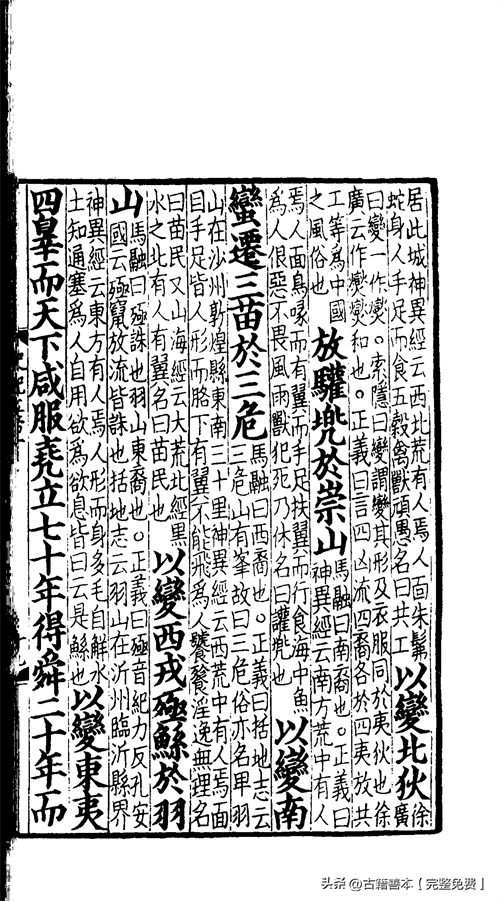 居此城神異經云西北荒有人焉人面朱髴
蛇身人手足而食五穀禽獸頑愚名曰共工
以變北狄
徐
廣
曰變一作爕。索隱曰變謂變其形及衣服同於夷狄也徐
廣云作爕爕和也。正義曰言四凶流四裔各於四夷放共
工等為中國
之風俗也
放驩兠於崇山
馬融曰南裔也。正義曰
神異經云南方荒中有人
焉人面鳥喙而有翼而手足扶翼而行食海中魚
為人佷惡不畏風雨獸犯死乃休名曰讙兠也
以變南
蠻遷三苗於三危
馬融曰西裔也。正義曰括地志云
三危山有峯故曰三危俗亦名卑羽
山在沙州敦煌縣東南三十里神異經云西荒中有人焉面
目手足皆人形而胳下有翼不能飛為人饕餮淫逸無理名
曰苗民又山海經云大荒北經黑
水之北有人有翼名曰苗民也
以變西戎殛鯀於羽
山
馬融曰殛誅也羽山東裔也。正義曰殛音紀力反孔安
國云殛竄放流皆誅也括地志云羽山在沂州臨沂縣界
神異經云東方有人焉人形而身多毛自解水
土知通塞為人自用欲為欲息皆曰云是鯀也
以變東夷
四辠而天下咸服堯立七十年得舜二十年而
头条@古籍善本【完整免费】